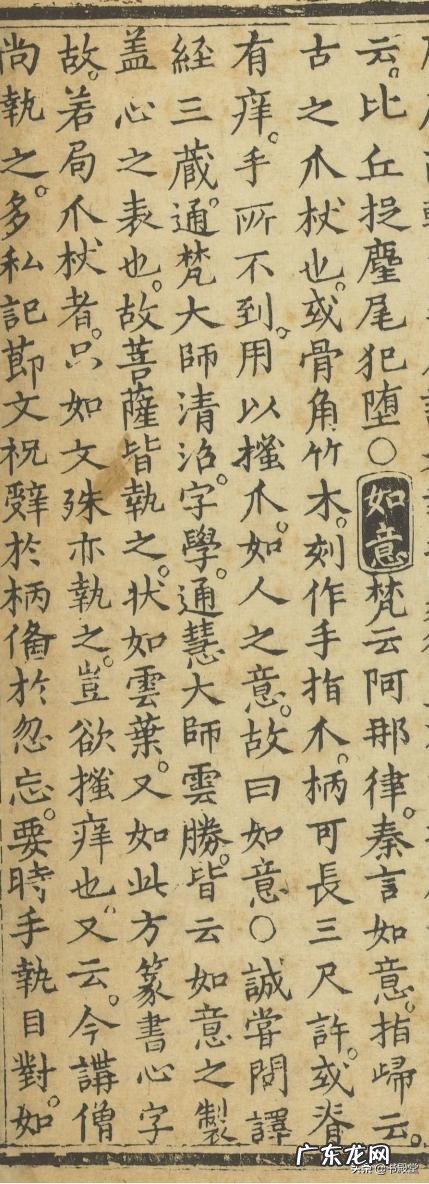 云。比丘捉麈尾犯墮○如意梵云阿那律。秦言如意。指歸云。
古之爪杖也。或骨角竹木。刻作手指爪。柄可長三尺許。或脊
有痒。手所不到。用以搔爪。如人之意。故曰如意○誠嘗問譯
経三蔵。通梵大師清沼。字學。通慧大師雲勝。皆云如意之製
盖心之表也。故菩薩皆執之。状如雲葉。又如此方篆書心字
故。若局爪杖者。只如文殊亦執之。豈欲搔痒也。又云。今講僧
尚執之。多私記節文祝辭於柄備於忽忘。要時手執目對。如
广东龙网